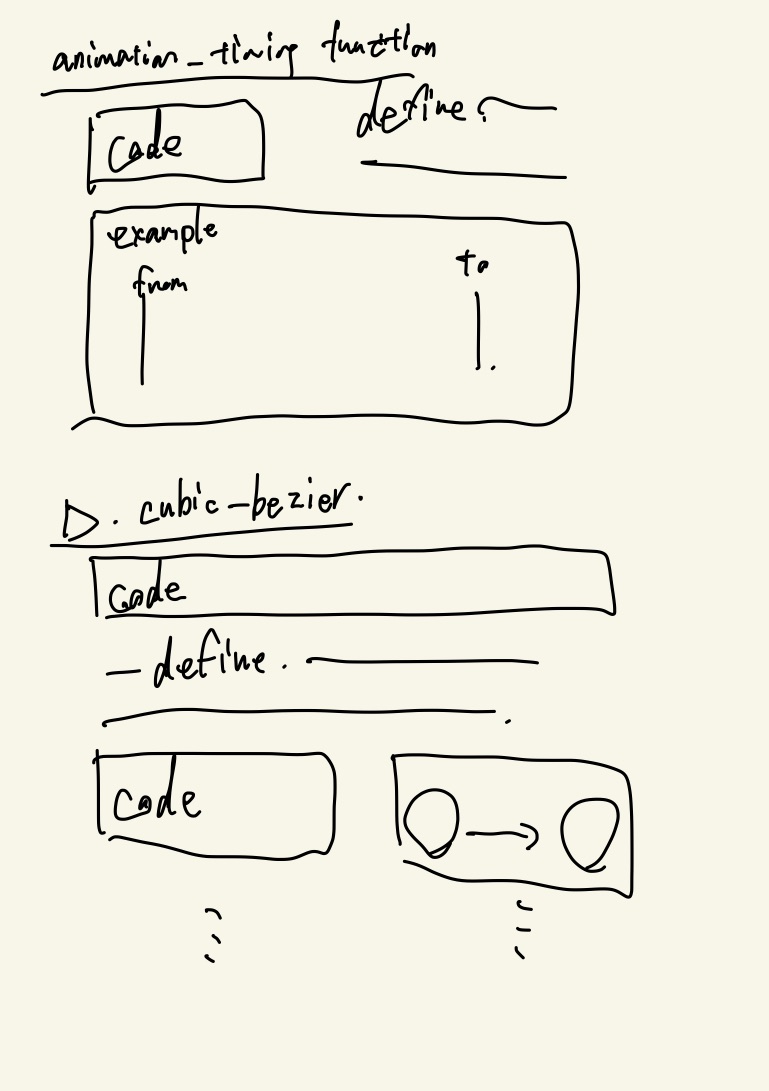 animation_timing function
code
define.
example
from
to
D. cubic-bezier.
code
— define.
code